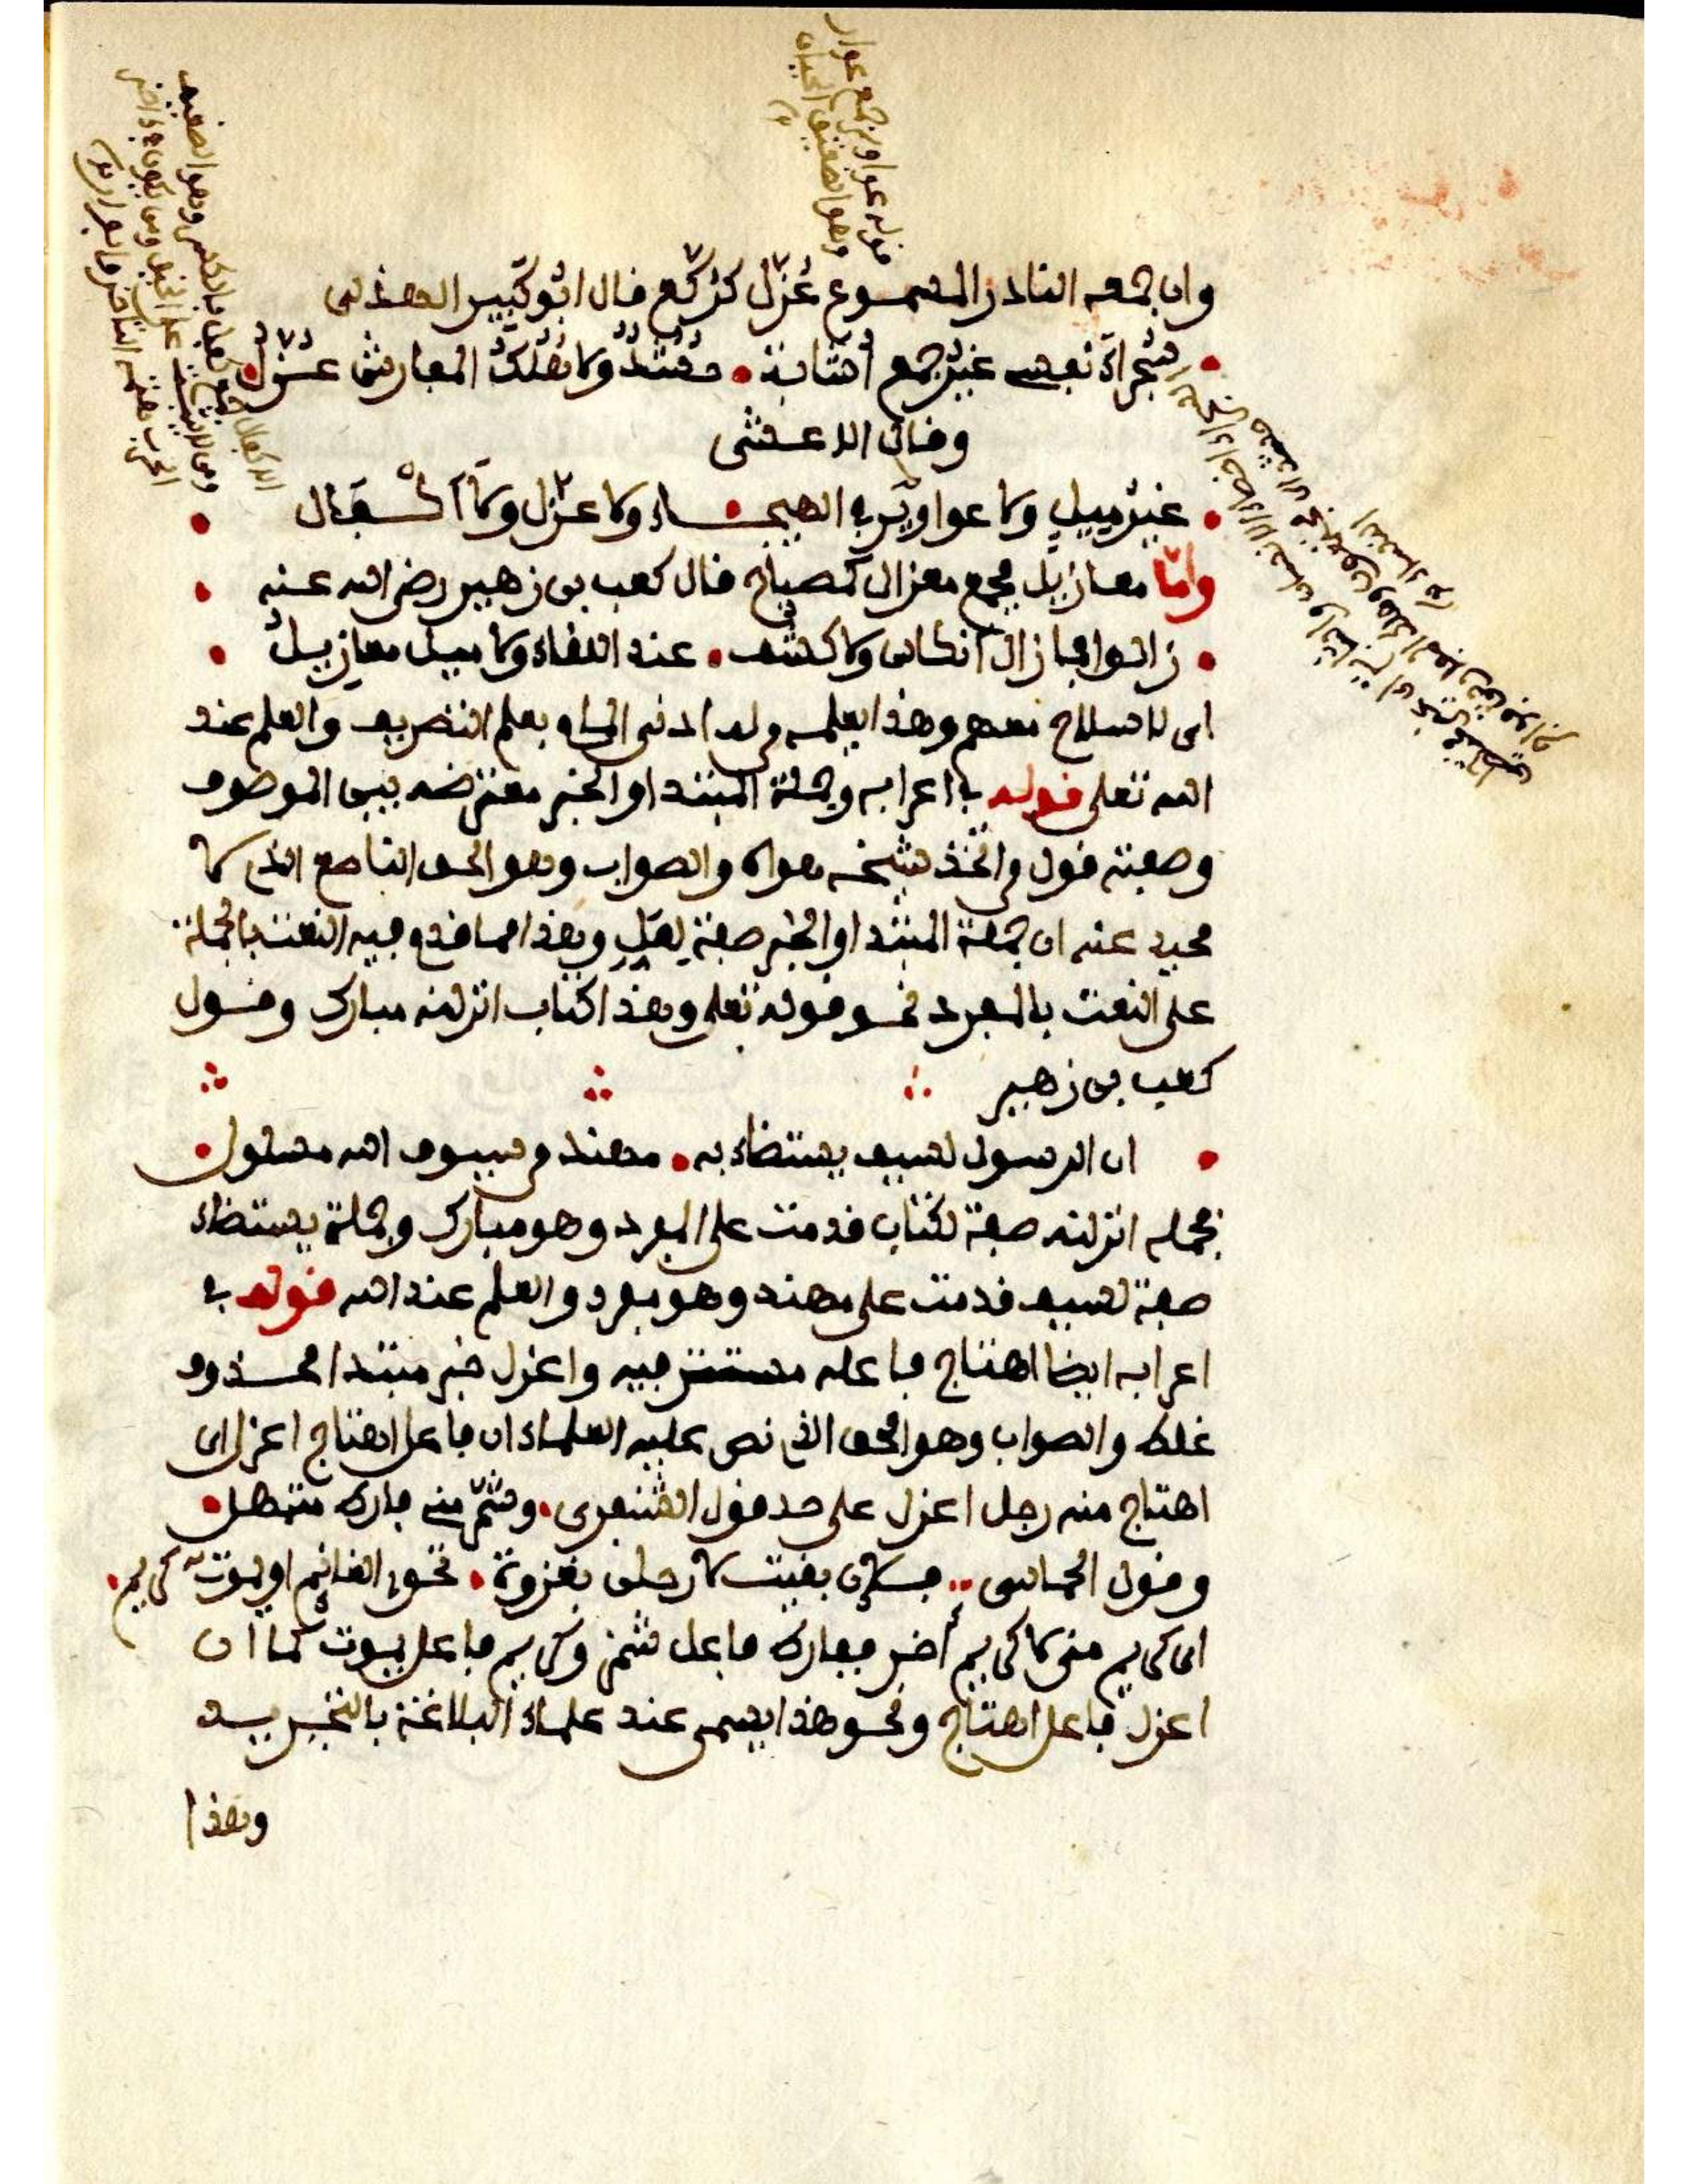 وان جمعه النادر المسموع عُزَّل كرُكَّع قال ابُو كَبِير الهذلي
سُجَراءَ نفسي غيرُ جمع أُشَابة حُشُدٌ ولا هُلُكُ المفارش عُزّلُ
وقال الاعشى
غيرُ مِيلٍ ولا عواوير في الهيجـاء ولا عزّل ولا اكفال
وامّا معازيل فجمع معزال كمصباح قال كعب بن زهير رضي الله عنه
زالوا فما زال أنكاس ولا كُشُف عند اللقاء ولا ميل معازيل
اي لا سلاح معهم وهذا يعلمه من له ادنى المام بعلم التصريف والعلم عند
الله تعلى قوله في اعرابه وجملة المبتدا والخبر معترضة بين الموصوف
وصفته قول من اتخذ شيخه هواه والصواب وهو الحق الناصع الذي لا
محيد عنه ان جملة المبتدا والخبر صفة لفَلٍ وهذا مما قدم فيه النعت بالجملة
على النعت بالمفرد نحو قوله تعلى وهذا كتاب انزلنه مبارك وقول
كعب بن زهير
ان الرسول لسيف يستضاء به مهند من سيوف الله مسلول
فجملة انزلنه صفة لكتاب قدمت على المفرد وهو مبارك وجملة يستضاء
صفة لسيف قدمت على مهند وهو مفرد والعلم عند الله قوله في
اعرابه ايضا اهتاج فاعله مستتر فيه واعزل خبر مبتدا محذوف
غلط والصواب وهو الحق الذي نص عليه العلماء ان فاعل اهتاج اعزل اي
اهتاج منه رجل اعزل على حد قول الشنفرى وشمّر مني فارط متمهل
وقول الحماسي فلئن بقيت لأرحلن بغزوة تحوي الغنائم او يموتَ كريم
اي كريم مني لا كريم أخر ففارط فاعل شمّر وكريم فاعل يموت كما ان
اعزل فاعل اهتاج ونحو هذا يسمى عند علماء البلاغة بالتجريد
وهذا
قوله عواوير جمع عوار
وهو الضعيف الجبان